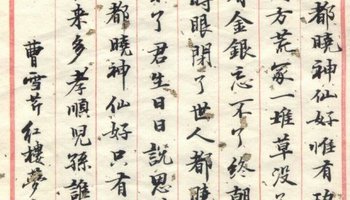 都曉神仙好惟有功
方荒冢一堆草没
金銀忘不了終朝
時眼閉了世人都曉
了君生日日說恩
都曉神仙好只有
来多孝順兒孫誰
曹雪芹紅樓夢